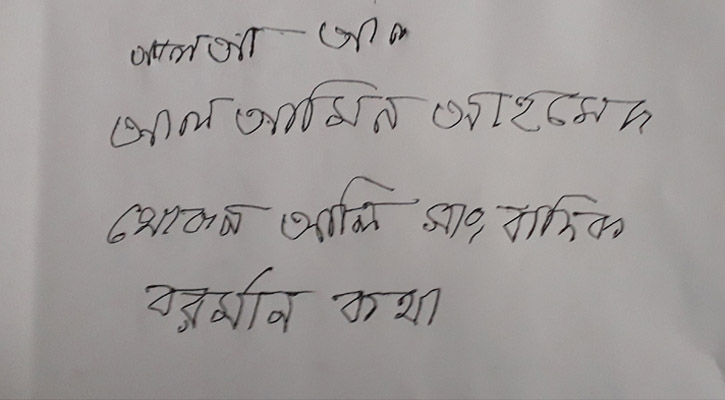 আলআ আল
আল আমিন আহমেদ
খোকন আলি সাংবাদিক
বর্তমান কথা